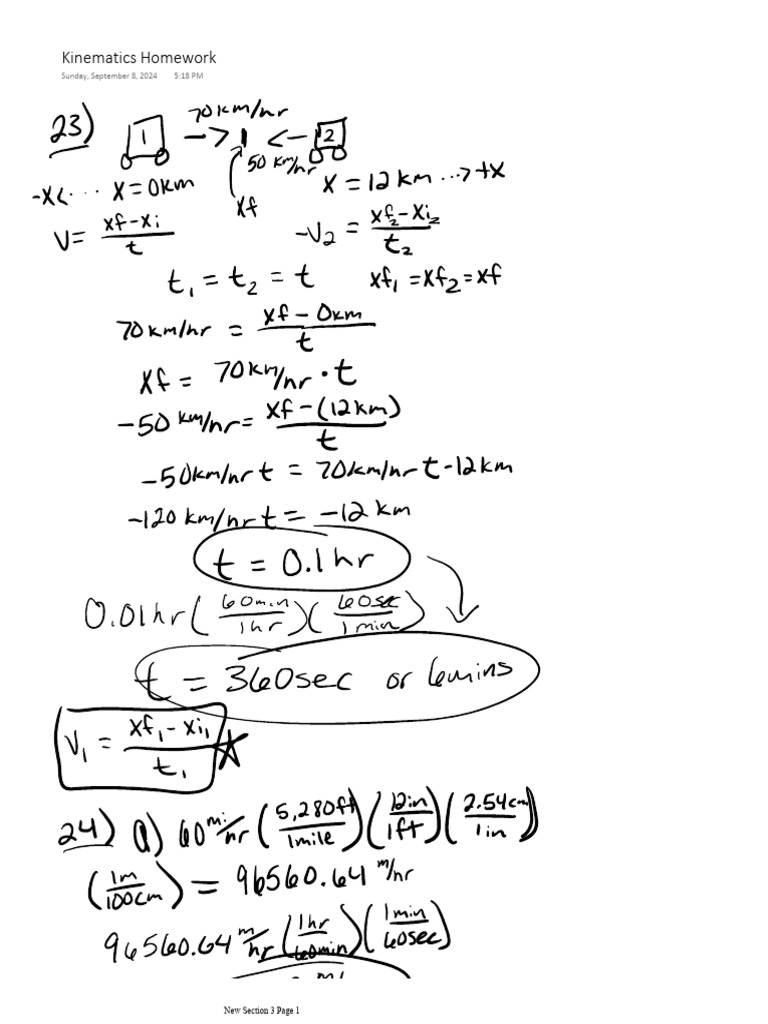 Kinematics Homework
Sunday, September 8, 2024 5:18 PM
23) 1 70 km/hr -> <- 2
50 km/hr
-x<··· x=0km xf x=12 km ···>+x
v = (xf-xi)/t -v₂ = (xf₂-xi₂)/t₂
t₁ = t₂ = t xf₁ = xf₂ = xf
70 km/hr = (xf - 0km)/t
xf = 70 km/hr · t
-50 km/hr = (xf-(12km))/t
-50km/hr t = 70km/hr t -12km
-120 km/hr t = -12 km
t = 0.1hr
0.01hr (60min/1hr)(60sec/1min)
t = 360sec or 6mins
v₁ = (xf₁-xi₁)/t₁
24) a) 60 mi/hr (5,280ft/1mile)(12in/1ft)(2.54cm/1in)
(1m/100cm) = 96560.64 m/hr
96560.64 m/hr (1hr/60min)(1min/60sec)